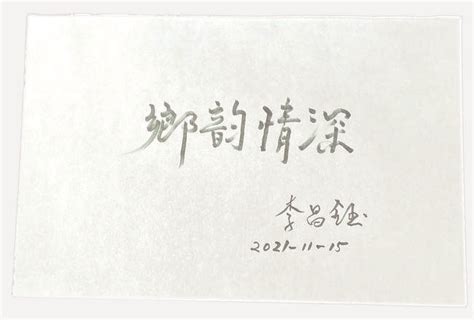 鄉韵情深
李昌鈺
2021-11-15